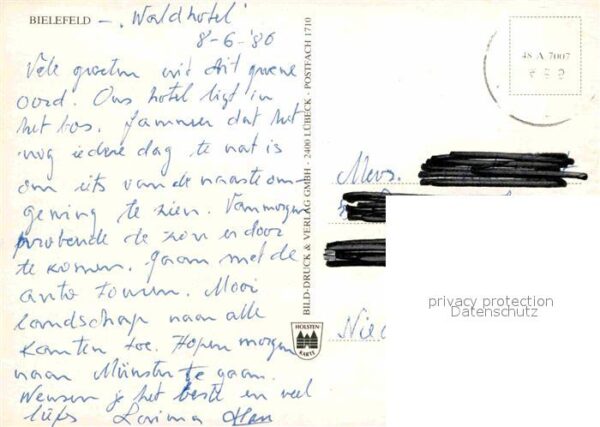 BIELEFELD - "Waldhotel"
8-6-'86
Vele groeten uit dit groene
oord. Ons hotel ligt in
het bos. Jammer dat het
nog iedere dag te nat is
om iets van de naaste om-
geving te zien. Vanmorgen
probeerde de zon erdoor
te komen. Gaan met de
auto touren. Mooi
landschap naar alle
kanten toe. Hopen morgen
naar Münster te gaan.
Wensen je het beste en veel
liefs
BILD-DRUCK & VERLAG GMBH · 2400 LÜBECK · POSTFACH 1710
HOLSTEN
KARTE
48 A 7007
Mevr.
privacy protection
Datenschutz